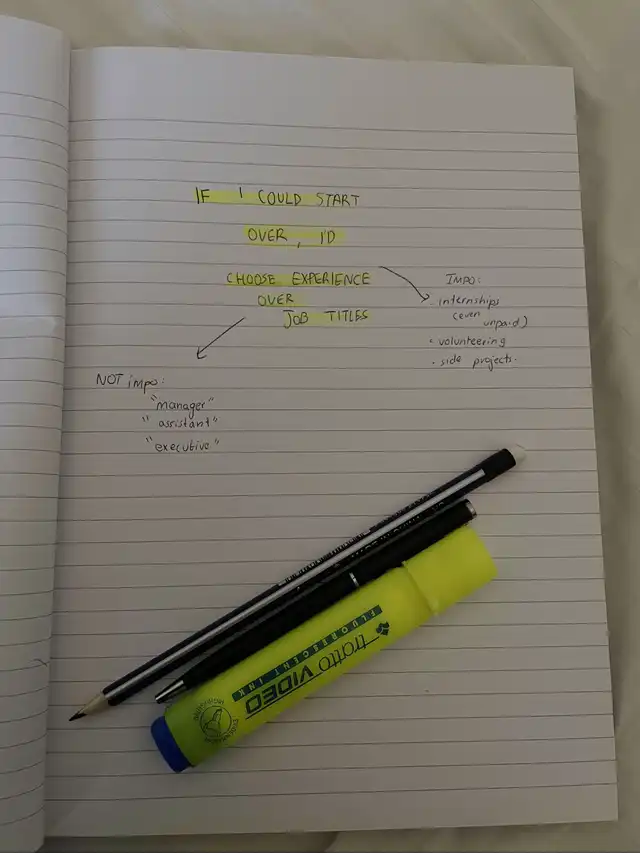 IF I COULD START
OVER, I'D
CHOOSE EXPERIENCE
OVER
JOB TITLES
IMPO:
· internships
(even
unpaid)
· volunteering
· side projects.
NOT impo:
"manager"
"assistant"
"executive"
tratto VIDEO
FLUORESCENT INK